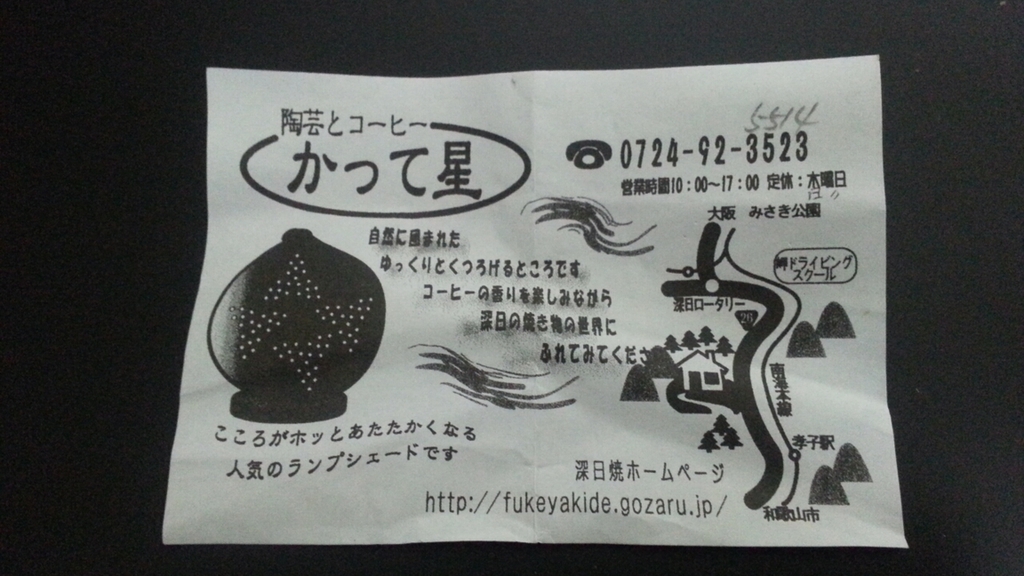 陶芸とコーヒー
かって星
5514
0724-92-3523
営業時間10:00〜17:00 定休:木曜日
日〃
大阪 みさき公園
岬ドライビング
スクール
深日ロータリー
26
自然に囲まれた
ゆっくりとくつろげるところです
コーヒーの香りを楽しみながら
深日の焼き物の世界に
ふれてみてくださ
南海本線
孝子駅
和歌山市
こころがホッとあたたかくなる
人気のランプシェードです
深日焼ホームページ
http://fukeyakide.gozaru.jp/